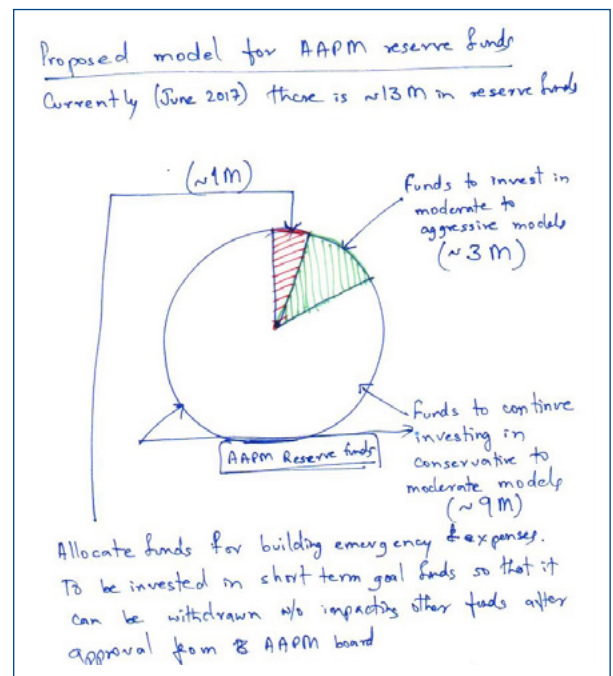 Proposed model for AAPM reserve funds
Currently (June 2017) there is ~13 M in reserve funds
(~1M)
Funds to invest in
moderate to
aggressive models
(~3 M)
Funds to continue
investing in
conservative to
moderate models
(~9M)
AAPM Reserve funds
Allocate funds for building emergency & expenses.
To be invested in short term goal funds so that it
can be withdrawn w/o impacting other funds after
approval from AAPM board